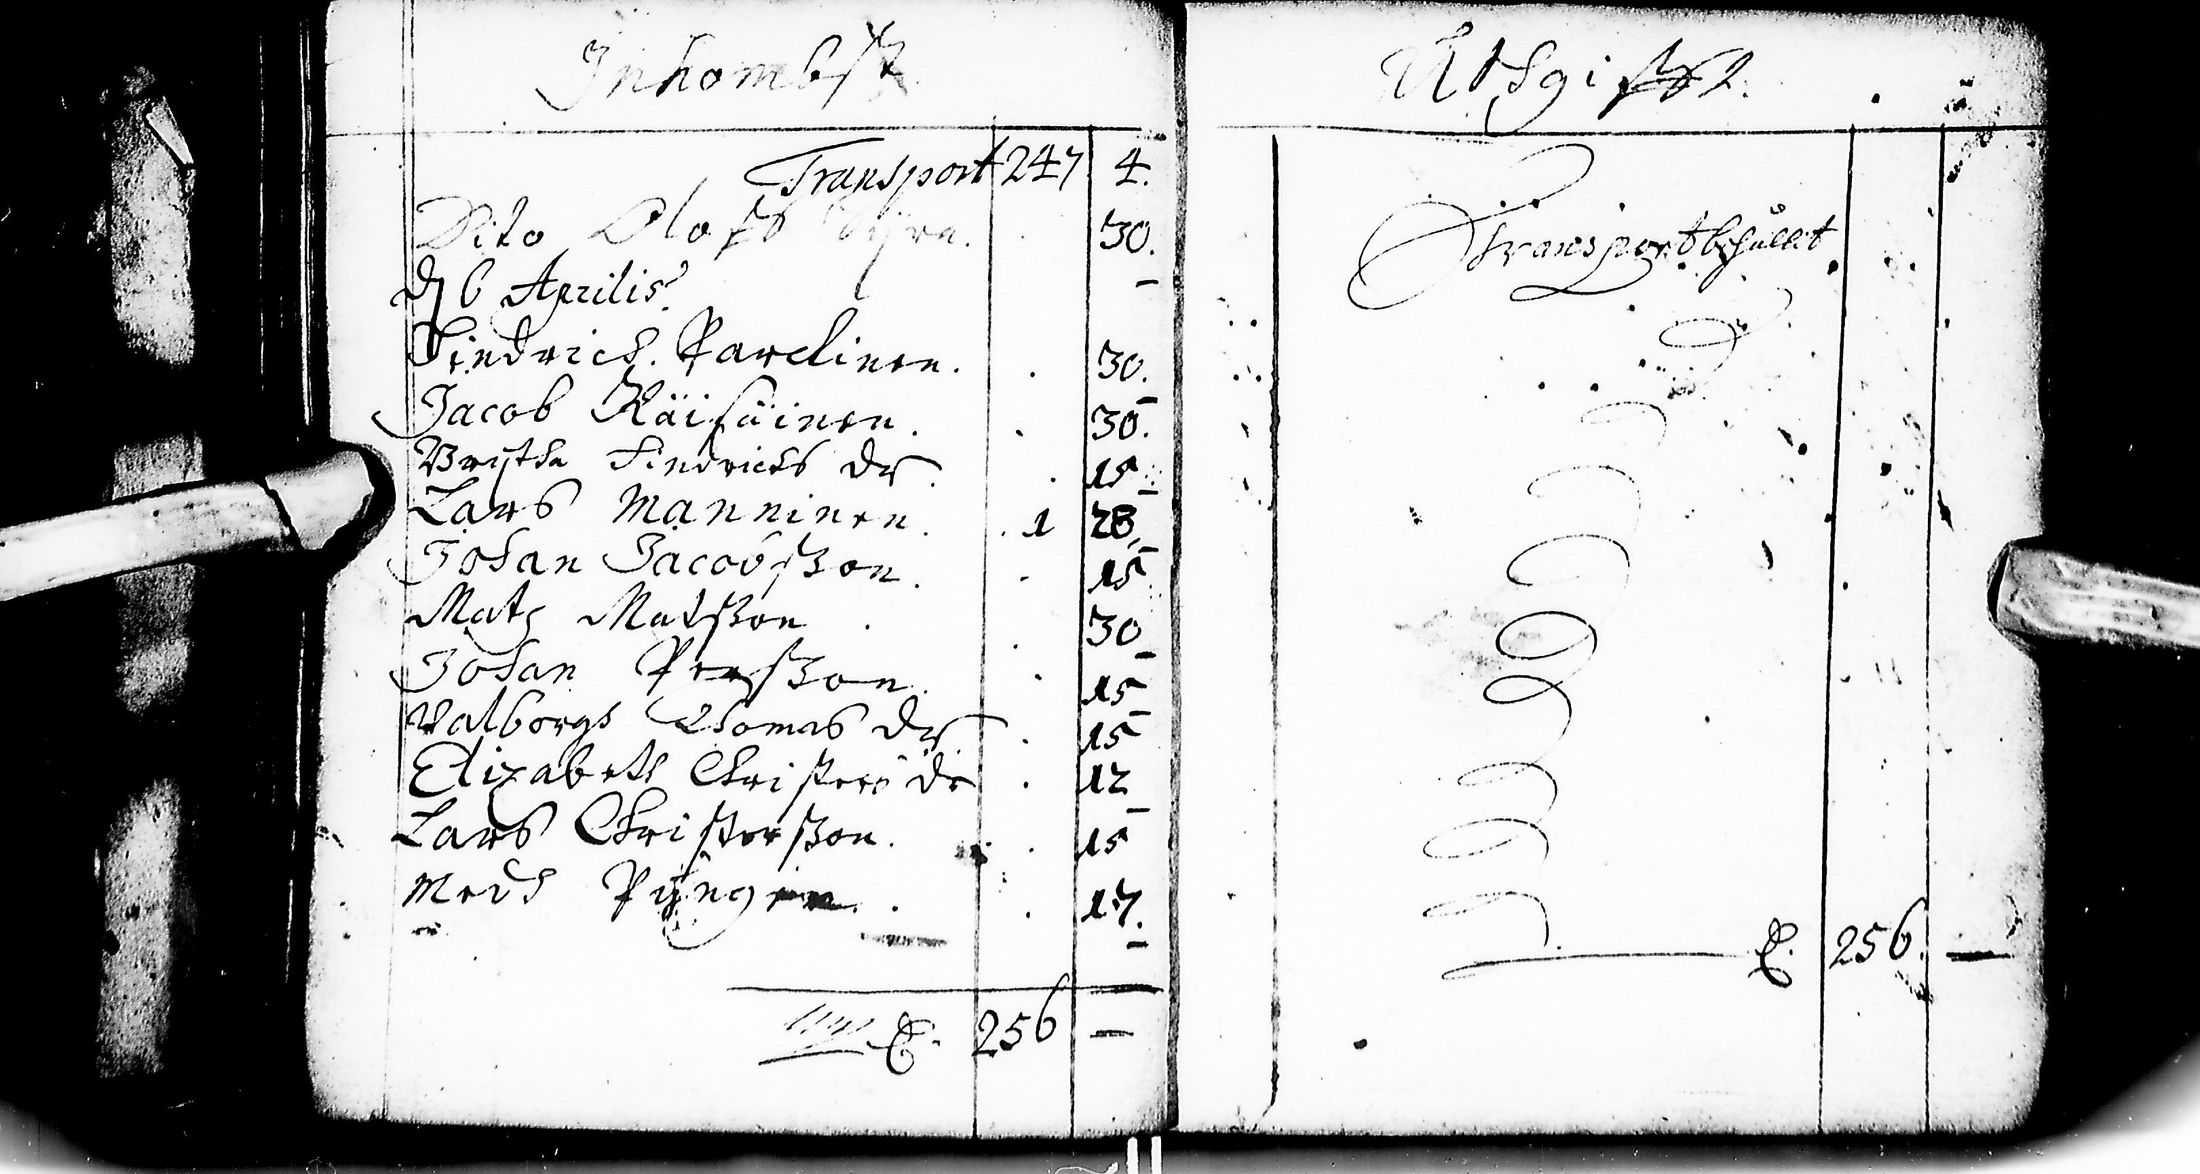 Inkombst
Transport 247 4.
Dito Olofs 30.
d 6 Aprilis
Hindrich Parclinen. 30.
Jacob Räisäinen. 30.
Brijtha Hindrichs dr. 15
Lars Manninen. 1 28.
Johan Jacobsson. 15
Mats Matsson 30
Johan Persson. 15
Valborgh Thomas dr 15
Elizabeth Christers dr 12
Lars Christersson. 15
Medh 17.
256 —
Utgifter.
Transport behållit
256. —